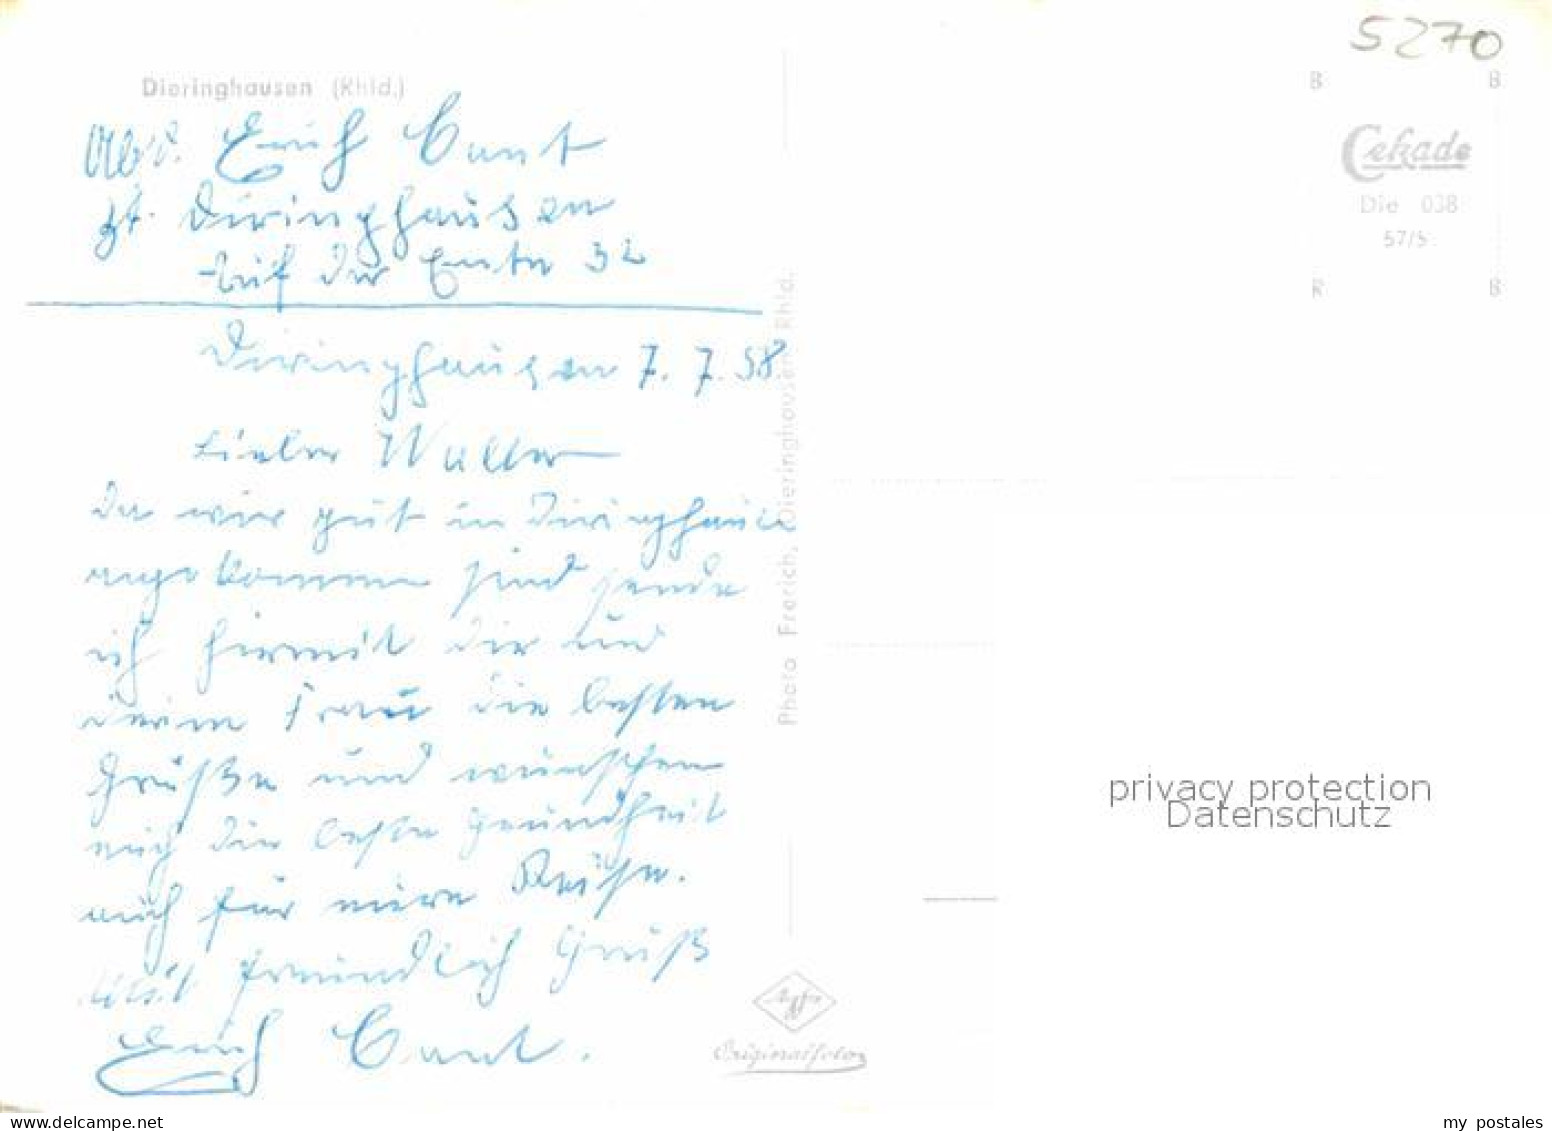 5270
Dieringhausen (Rhld.)
Abs. Erich Cant
zt. Diringhausen
Auf der Ente 32
Diringhausen 7. 7. 58
Lieber Walter
Da wir gut in Diringhausen
angekommen sind sende
ich hirmit dir und
deine Frau die besten
Grüße und wünschen
euch die beste Gesundheit
auch für eure Reise.
Mit freundlich Gruß
Erich Cant.
Photo Frerich, Dieringhausen Rhld.
Agfa
Originalfoto
Cekade
Die 038
57/5
privacy protection
Datenschutz
my postales